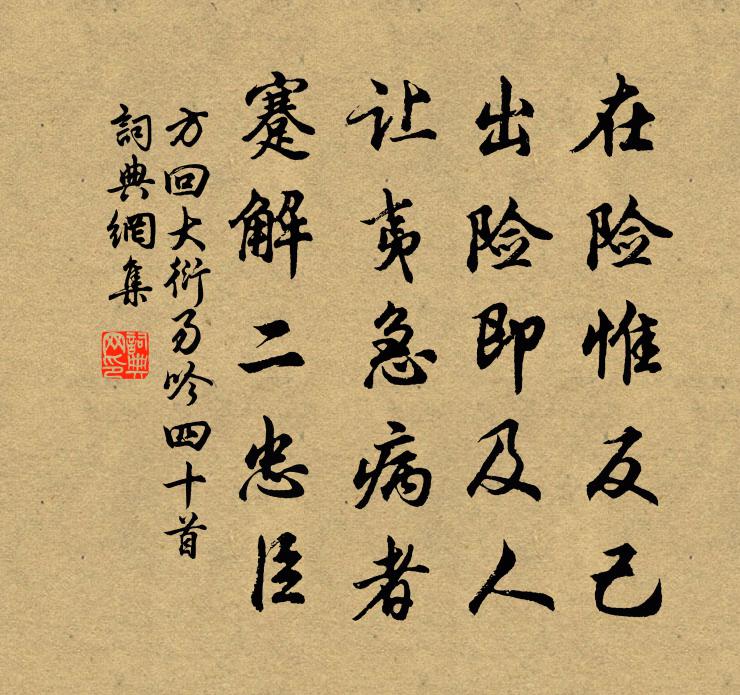 在险惟反己
出险即及人
让夷急病者
蹇解二忠臣
方回大衍易吟四十首
詞典網集
詞典网印